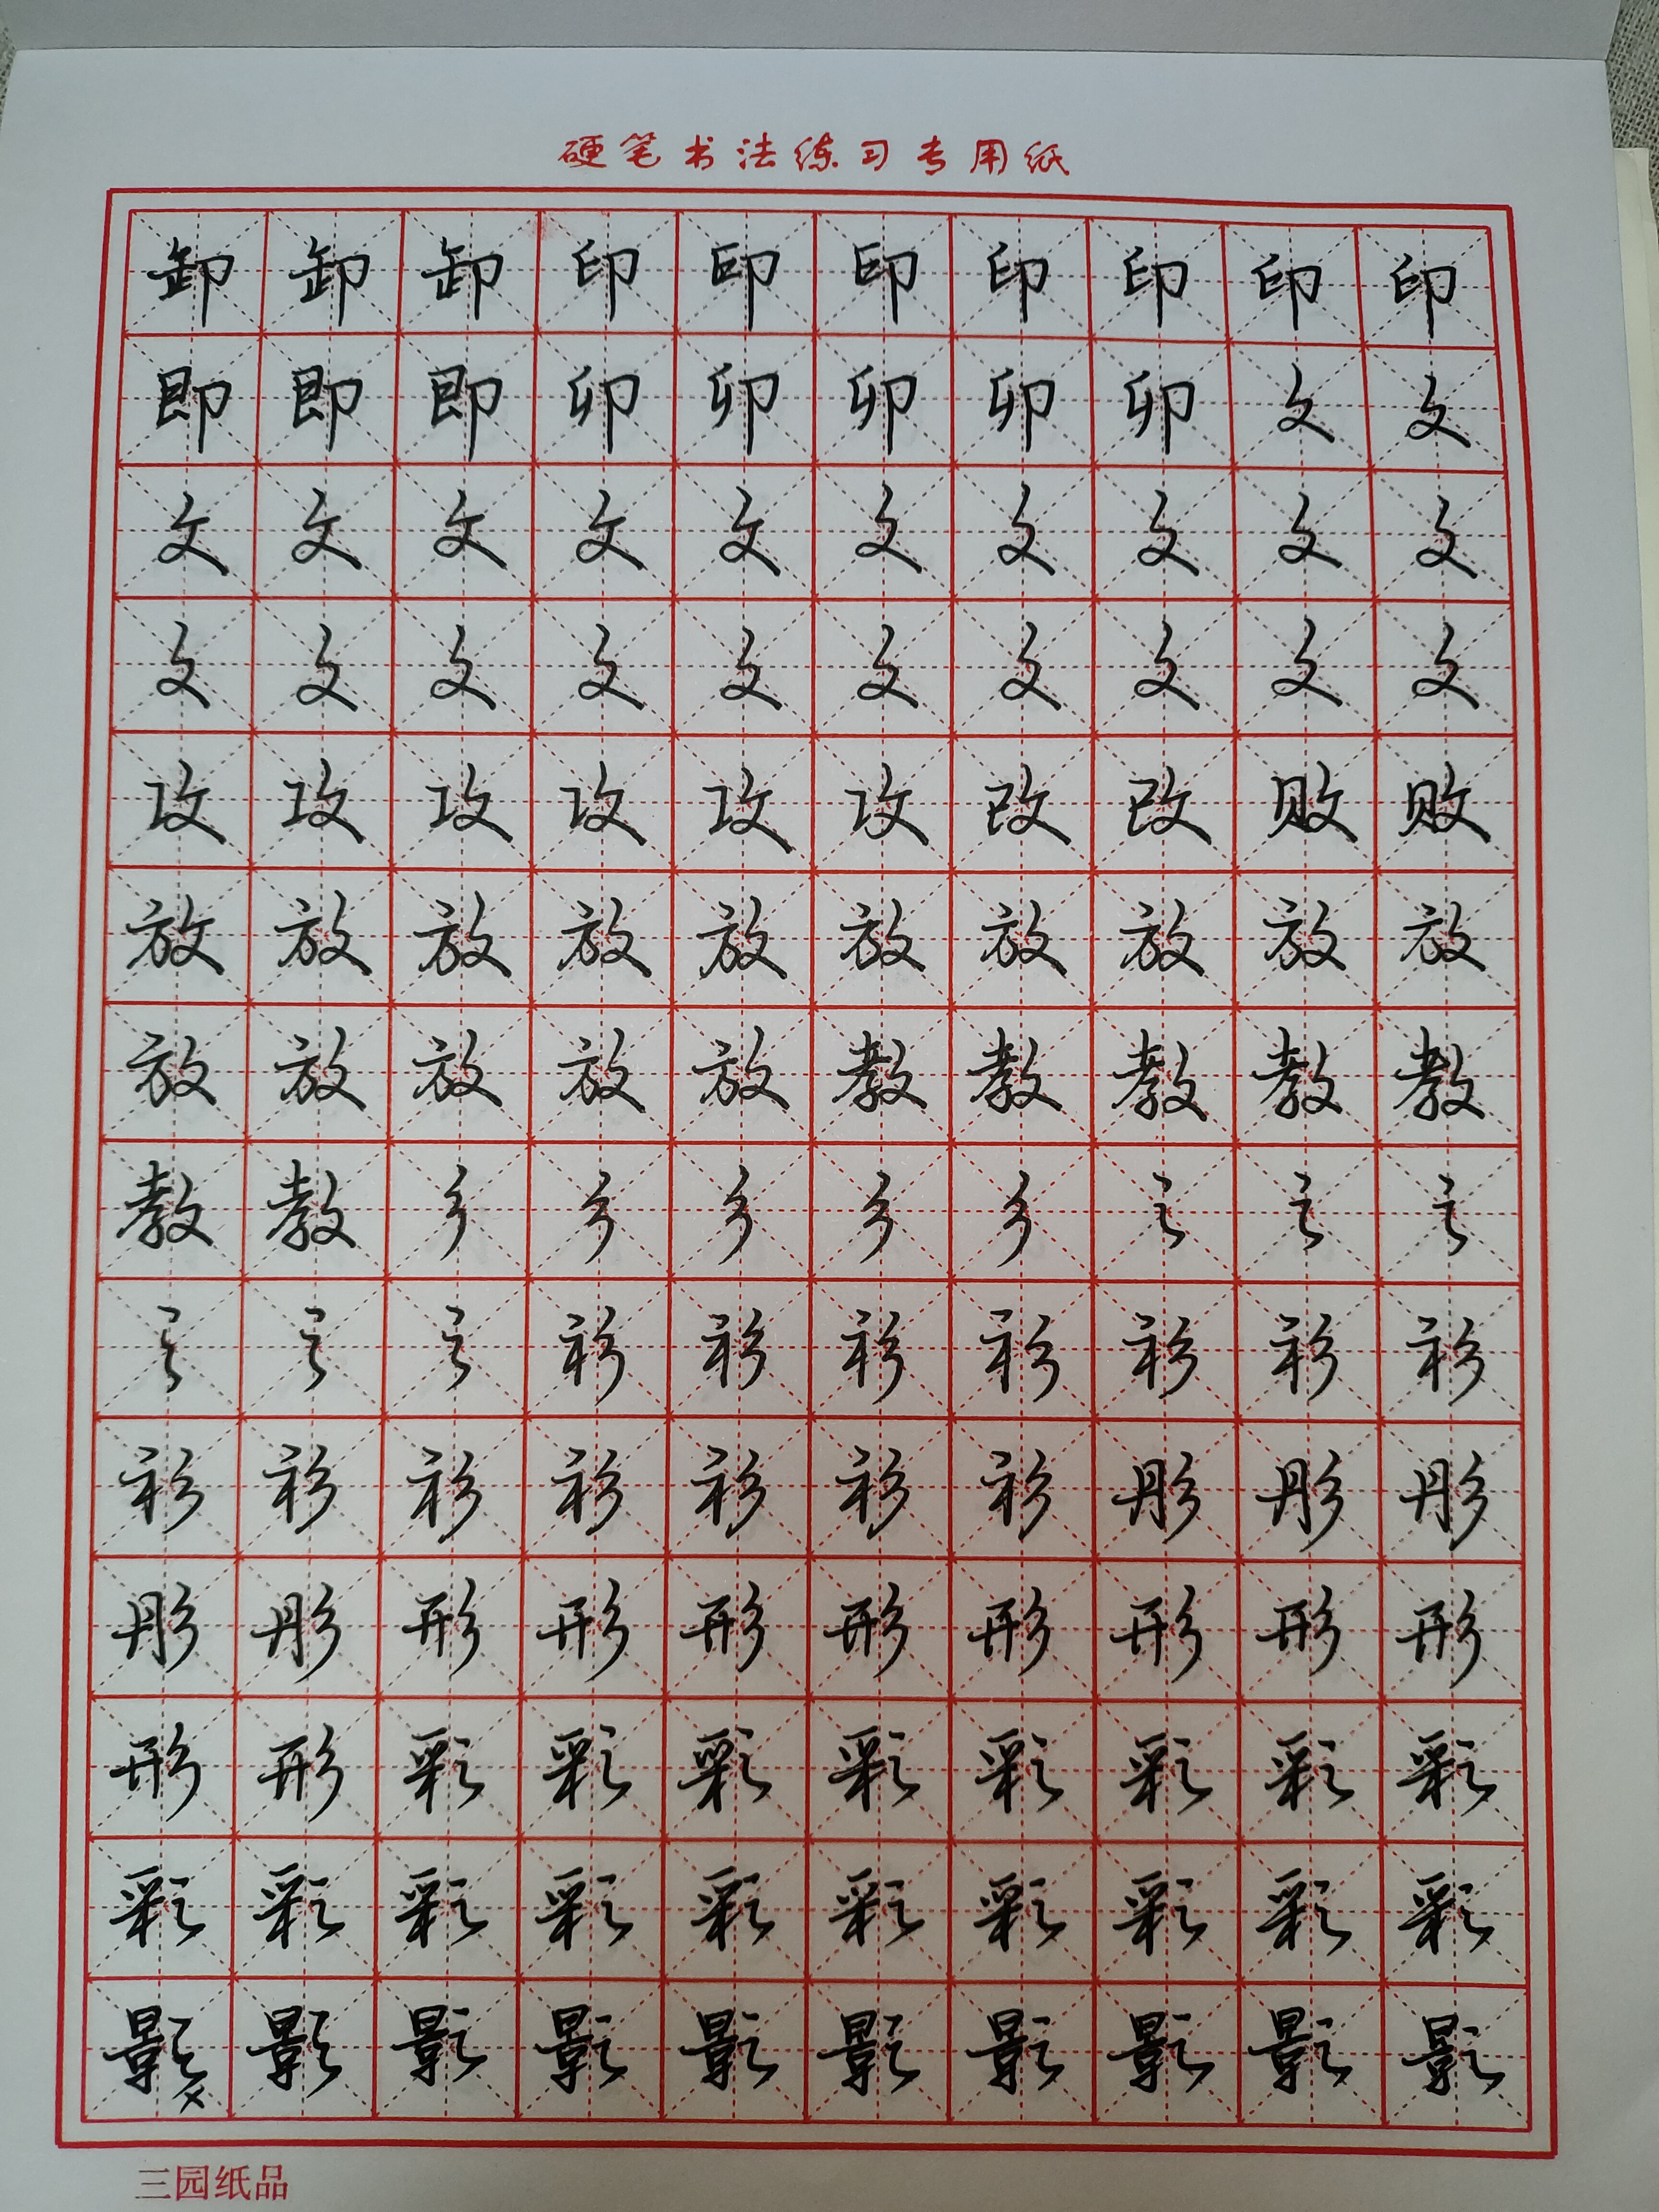 硬笔书法练习专用纸
卸卸卸印印印印印印印
即即即卯卯卯卯卯攵攵
攵攵攵攵攵攵攵攵攵攵
攵攵攵攵攵攵攵攵攵攵
攻攻攻攻攻攻改改败败
放放放放放放放放放放
放放放放放教教教教教
教教彡彡彡彡彡彡彡彡
彡彡彡衫衫衫衫衫衫衫
衫衫衫衫衫衫衫彤彤彤
彤彤形形形形形形形形
形形彩彩彩彩彩彩彩彩
彩彩彩彩彩彩彩彩彩彩
影影影影影影影影影影
三园纸品